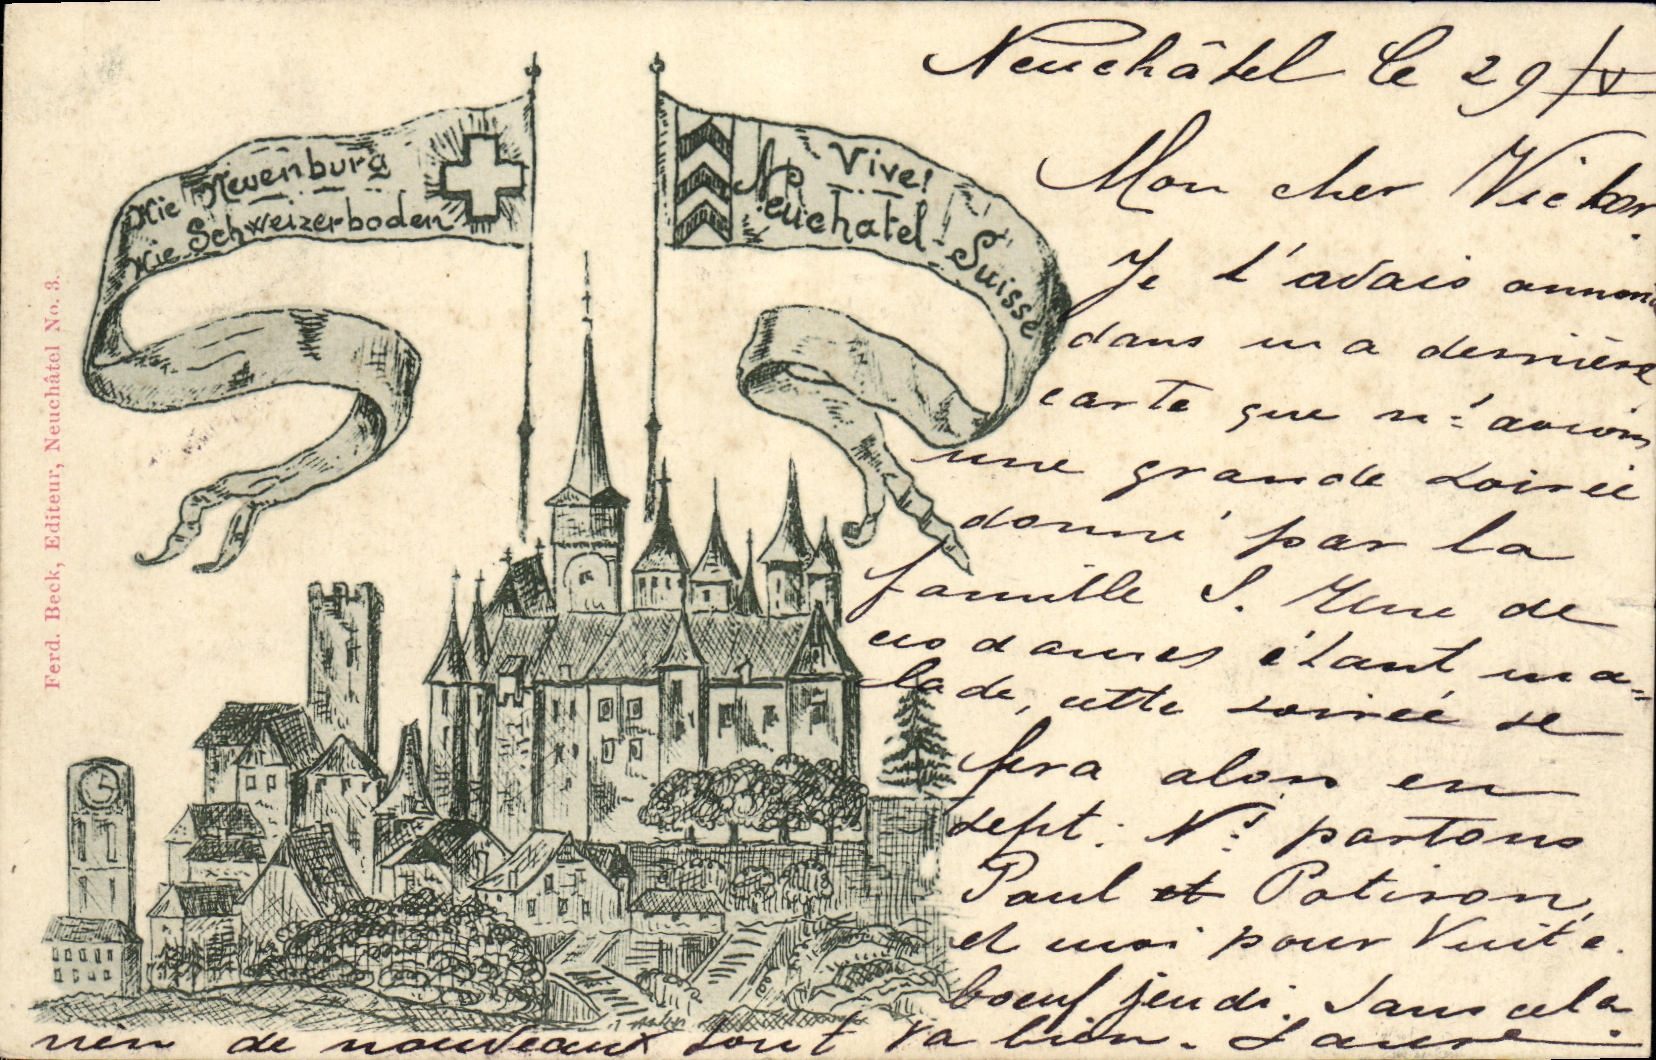 Ferd. Beck, Editeur, Neuchâtel No. 3.
Hie Neuenburg
Hie Schweizerboden
Vive!
Neuchatel-Suisse
Neuchâtel le 29/V
Mon cher Victor.
Je t'avais annoncé
dans ma dernière
carte que n: avions
une grande soirée
donné par la
famille S. Une de
ces dames étant ma=
lade, cette soirée se
fera alors en
sept. Ns partons
Paul et Potiron,
et moi pour
boeuf jeudi. Sans cela
rien de nouveaux tout va bien. Laure.